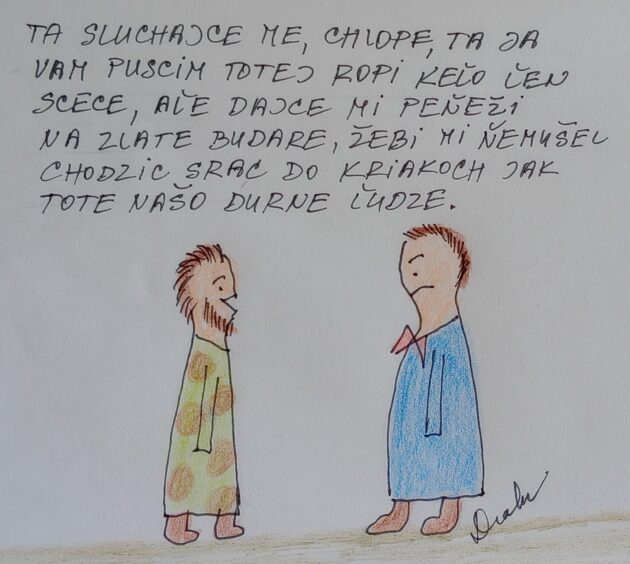 TA SLUCHAJCE ME, CHLOPE, TA JA
VAM PUSCIM TOTEJ ROPI KEĽO ĽEN
SCECE, AĽE DAJCE MI PEŇEŽI
NA ZLATE BUDARE, ŽEBI MI ŇEMUŠEL
CHODZIC SRAC DO KRIAKOCH JAK
TOTE NAŠO DURNE ĽUDZE.